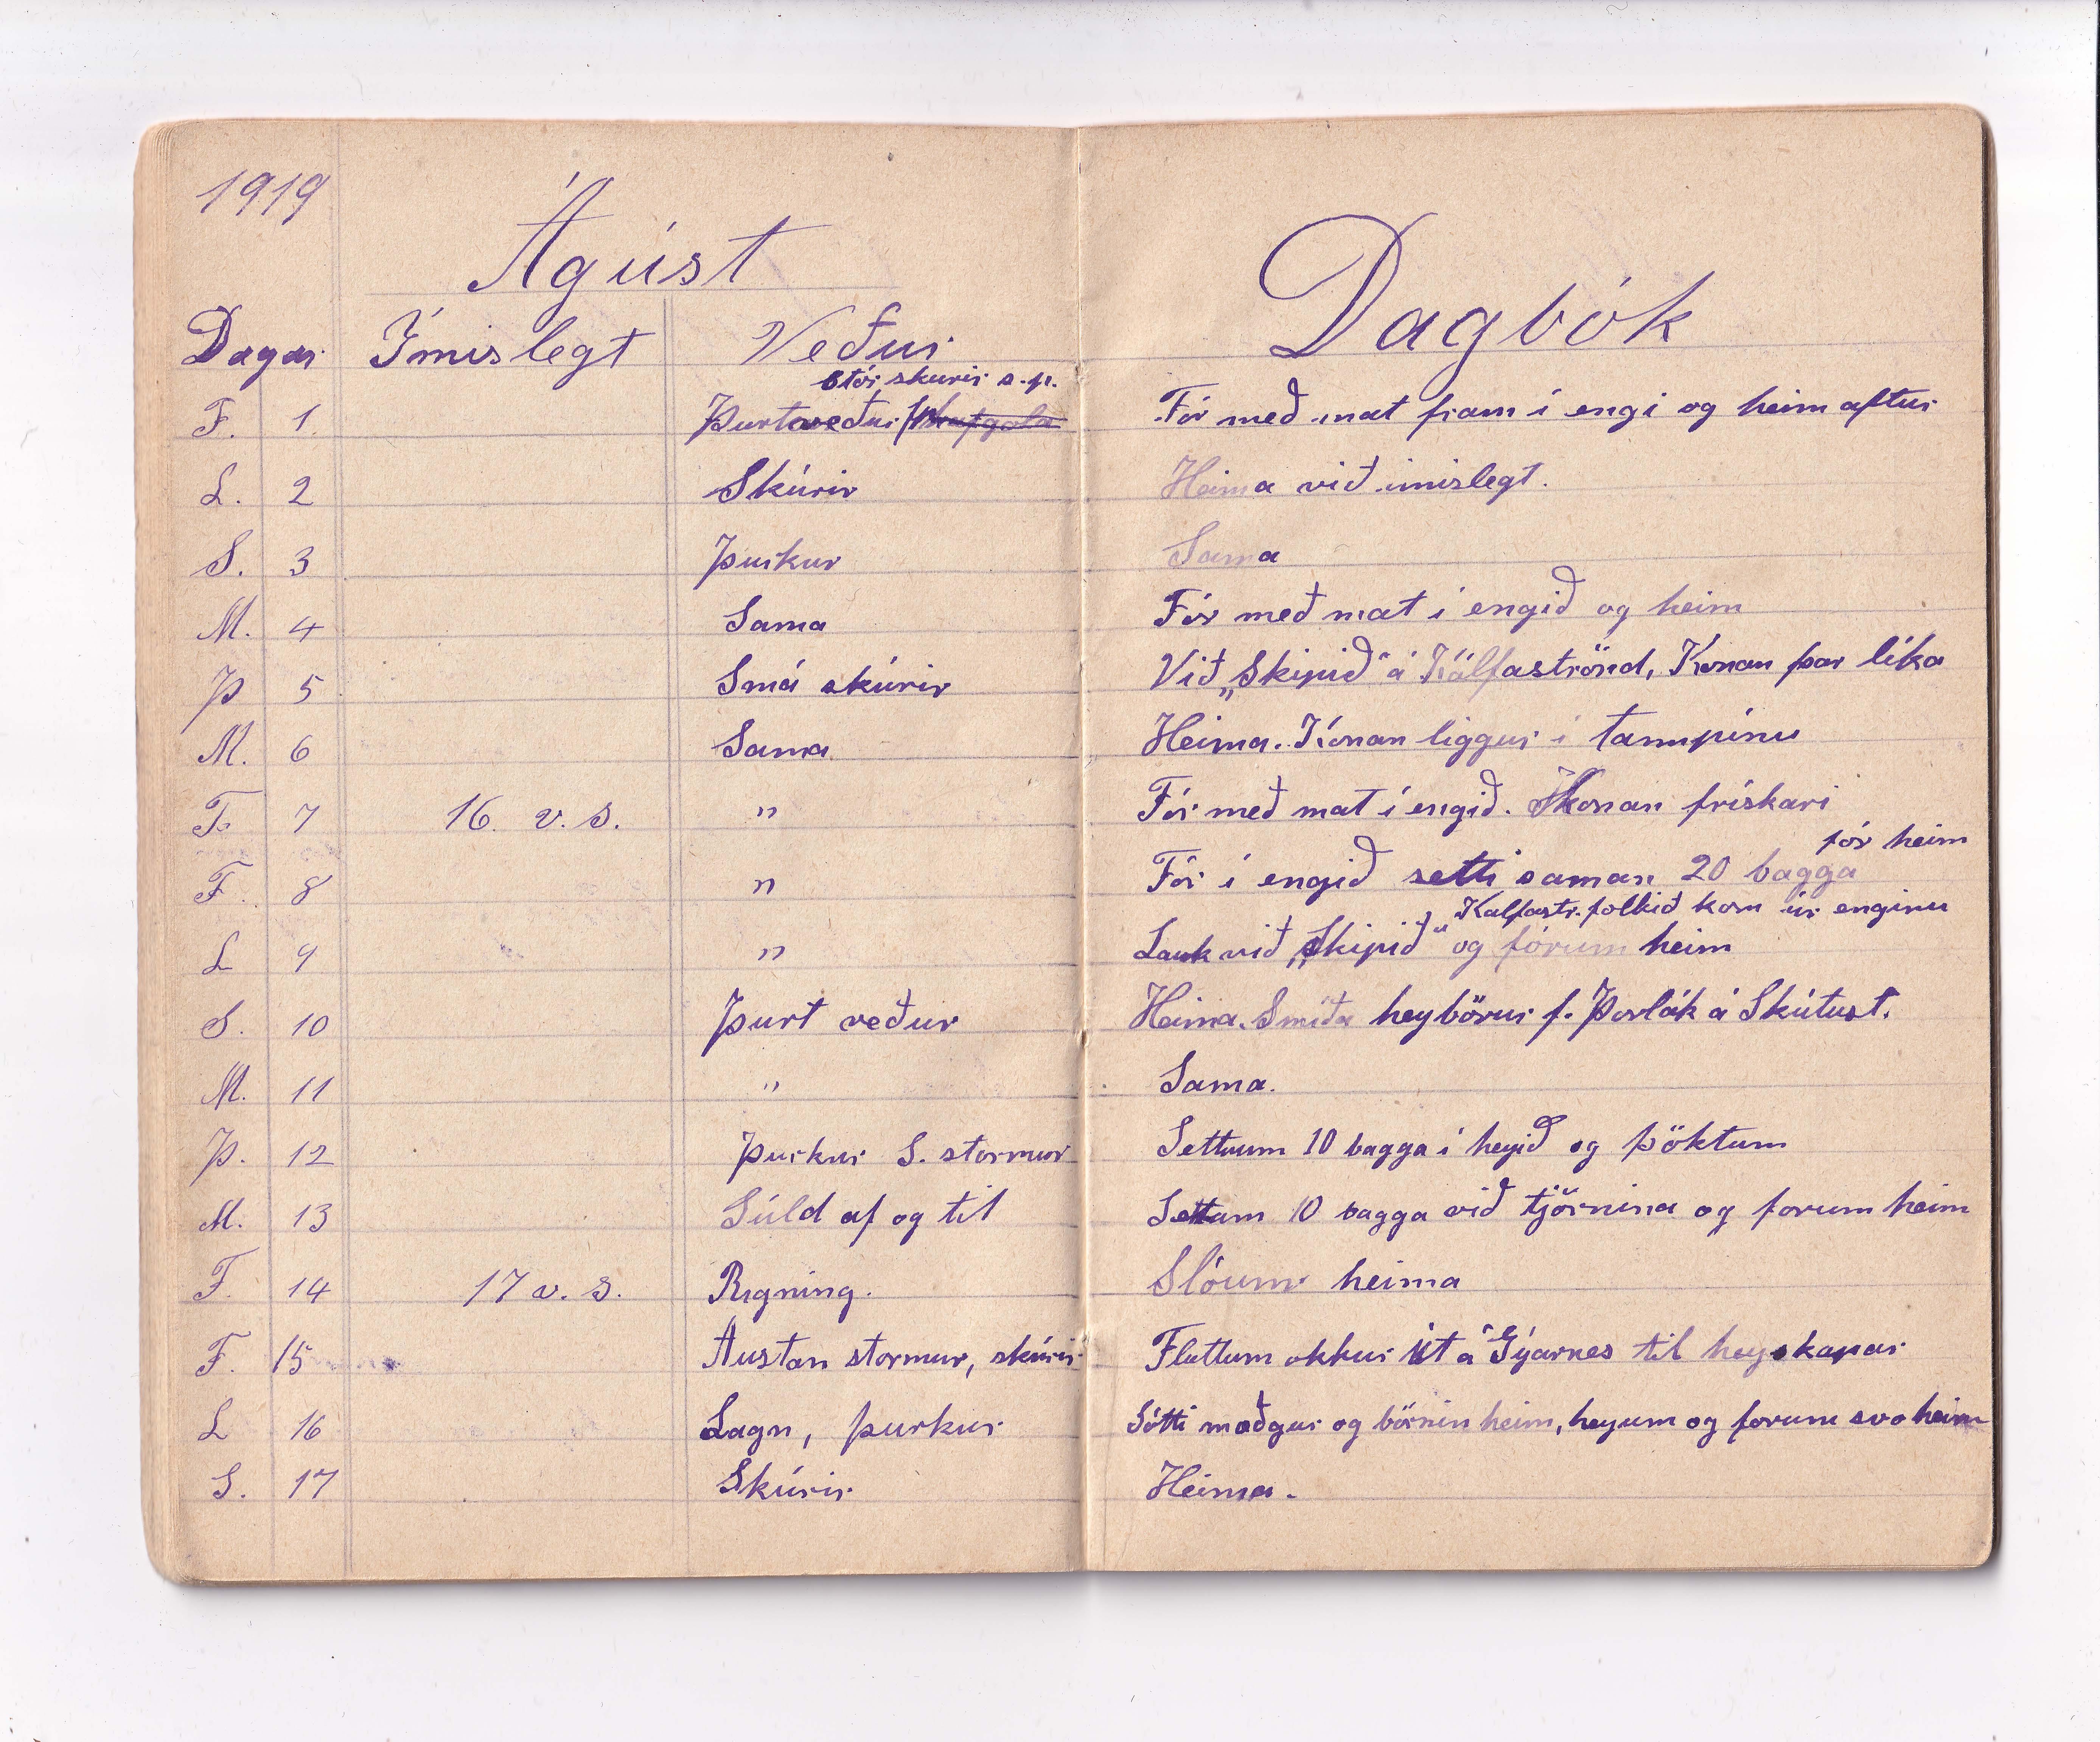 1919
Ágúst
Dagbók
Dagar Ímislegt Veður
stór skurir s.p.
F. 1. Þurtaveður Fór með mat fram í engi og heim aftur
L. 2 Skúrir Heima við ímislegt.
S. 3 Þurkur Sama
M. 4 Sama Fór með mat í engið og heim
Þ 5 Smá skúrir Við „Skipið“ á Kálfaströnd, Konan þar líka
M. 6 Sama Heima. Konan liggur í tannpínu
F. 7 16. v. s. " Fór með mat í engið. Konan frískari
fór heim
F. 8 " Fór í engið setti saman 20 bagga
Kalfastr. folkið kom úr enginu
L 9 " Lauk við „Skipið“ og fórum heim
S. 10 Þurt veður Heima. Smíða heybörur f. Þorlák á Skútust.
M. 11 " Sama.
Þ. 12 Þurkur S. stormur Settuum 10 bagga í heyið og þöktum
M. 13 Súld af og til Settum 10 bagga við tjörnina og forum heim
F. 14 17 v. s. Rigning. Slóum heima
F. 15 Austan stormur, skúrir Fluttum okkur út á Gýarnes til heyskapar
L 16 Logn, þurkur Sótti mæðgur og börnin heim, heyum og forum svo heim
S. 17 Skúrir Heima.